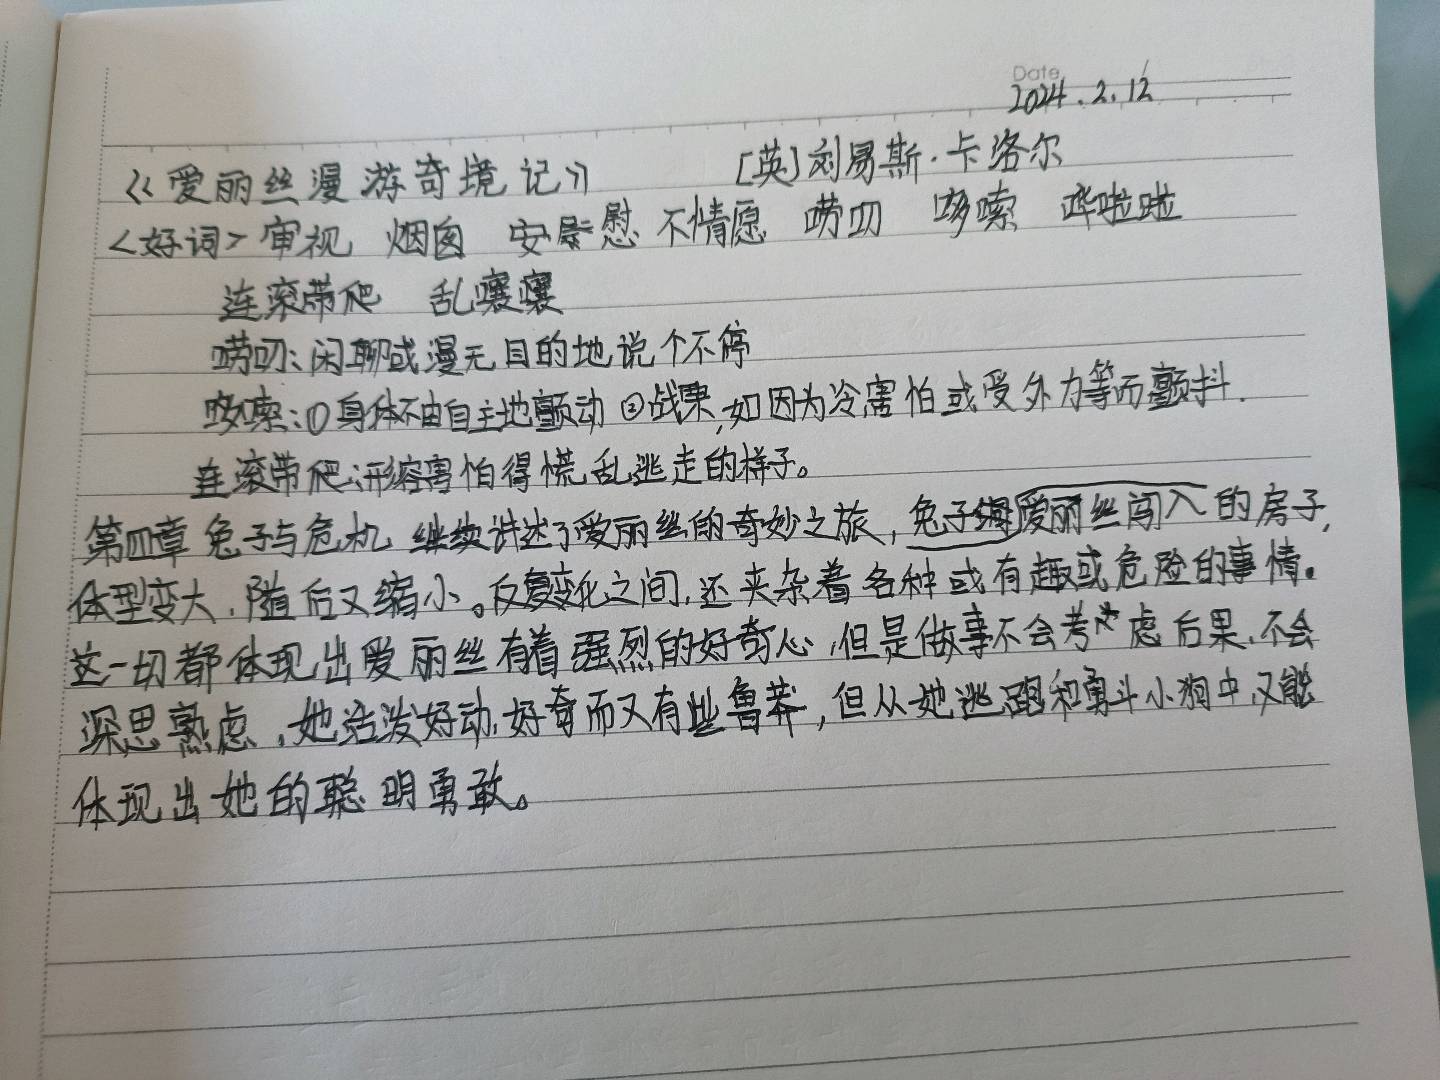 Date
2024.2.12
《爱丽丝漫游奇境记》 [英]刘易斯·卡洛尔
<好词> 审视 烟囱 安慰 不情愿 唠叨 哆嗦 哗啦啦
连滚带爬 乱嚷嚷
唠叨:闲聊或漫无目的地说个不停
哆嗦:①身体不由自主地颤动 ②战栗,如因为冷害怕或受外力等而颤抖.
连滚带爬:形容害怕得慌乱逃走的样子。
第四章 兔子与危机 继续讲述了爱丽丝的奇妙之旅,兔子爱丽丝闯入的房子,
体型变大,随后又缩小。反复变化之间,还夹杂着各种或有趣或危险的事情。
这一切都体现出爱丽丝有着强烈的好奇心,但是做事不会考虑后果,不会
深思熟虑,她活泼好动,好奇而又有些鲁莽,但从她逃跑和勇斗小狗中,又能
体现出她的聪明勇敢。